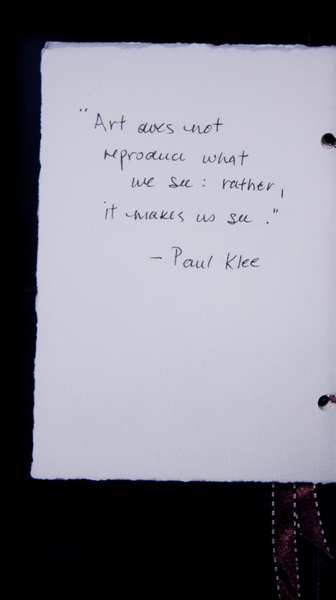 "Art does not
reproduce what
we see : rather,
it makes us see ."
- Paul Klee